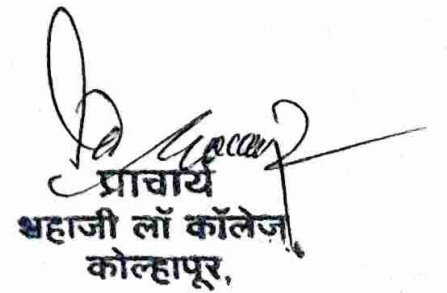 प्राचार्य
शहाजी लॉ कॉलेज
कोल्हापूर,